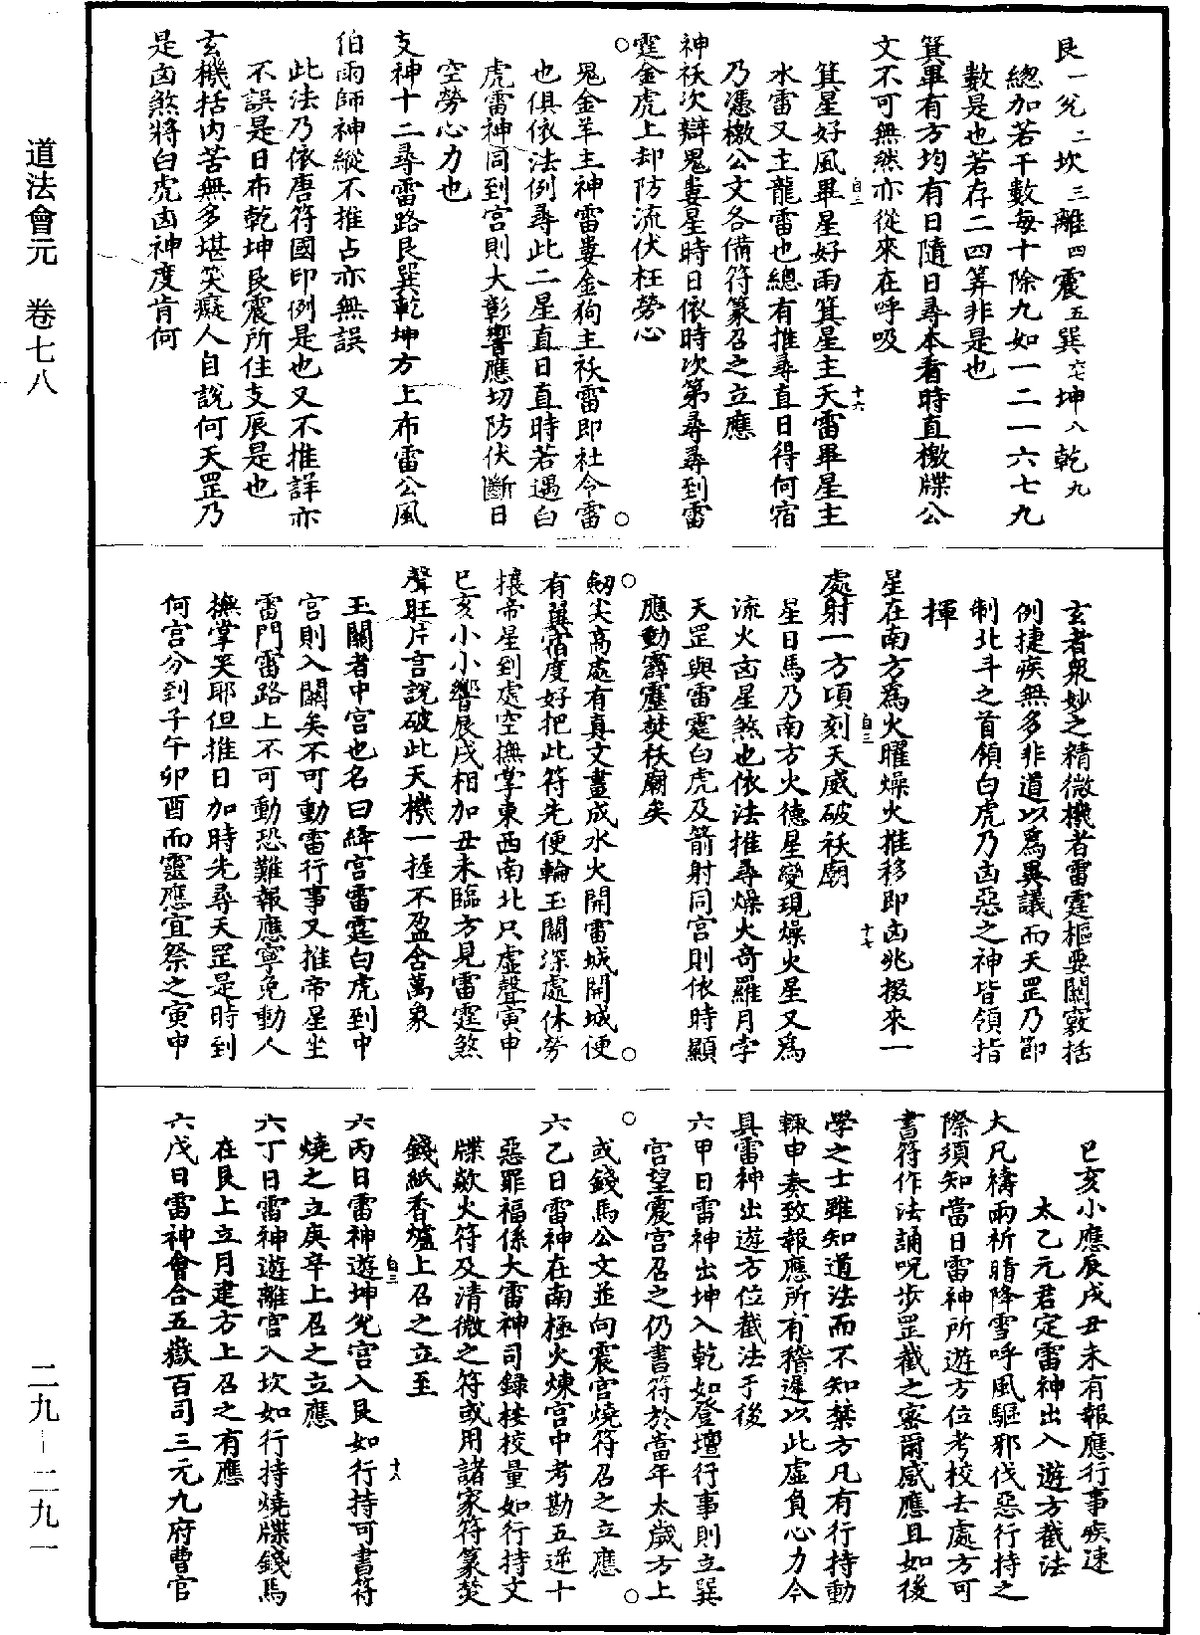 道法會元　卷七八
二九—二九一
艮一兌二坎三離四震五巽六七坤八乾九
總加若干數每十除九如一二一六七九
數是也若存二四筭非是也
箕畢有方均有日隨日尋本看時直檄牒公
文不可無然亦從來在呼吸
箕星好風畢星好雨箕星主天雷畢星主
水雷又主龍雷也總有推尋直日得何宿
乃憑檄公文各備符篆召之立應
神祅次辯鬼婁星時日依時次第尋尋到雷
霆金虎上却防流伏枉勞心
鬼金羊主神雷婁金狗主祅雷即社令雷
也俱依法例尋此二星直日直時若遇白
虎雷神同到宮則大彰響應切防伏斷日
空勞心力也
支神十二尋雷路艮巽乾坤方上布雷公風
伯雨師神縱不推占亦無誤
此法乃依唐符國印例是也又不推詳亦
不誤是日布乾坤艮震所住支辰是也
玄機括內苦無多堪笑癡人自說何天罡乃
是凶煞將白虎凶神度肯何
玄者衆妙之精微機者雷霆樞要關竅括
例捷疾無多非道以爲異議而天罡乃節
制北斗之首領白虎乃凶惡之神皆領指
揮
星在南方爲火曜燥火推移即凶兆掇來一
處射一方頃刻天威破祅廟
星日馬乃南方火德星變現燥火星又爲
流火凶星煞也依法推尋燥火奇羅月孛
天罡與雷霆白虎及箭射同宮則依時顯
應動霹靂焚祅廟矣
劒尖高處有真文畫成水火開雷城開城便
有翼宿度好把此符先便輪玉關深處休勞
攘帝星到處空撫掌東西南北只虛聲寅申
巳亥小小響辰戌相加丑未臨方見雷霆煞
聲旺片言說破此天機一握不盈含萬象
玉關者中宮也名曰絳宮雷霆白虎到中
宮則入關矣不可動雷行事又推帝星坐
雷門雷路上不可動恐難報應寧免動人
撫掌笑耶但推日加時先尋天罡是時到
何宮分到子午卯酉而靈應宜祭之寅申
巳亥小應辰戌丑未有報應行事疾速
太乙元君定雷神出入遊方截法
大凡禱雨祈晴降雪呼風驅邪伐惡行持之
際須知當日雷神所遊方位考校去處方可
書符作法誦呪步罡截之寀爾感應且如後
學之士雖知道法而不知禁方凡有行持動
輒申奏致報應所有稽遲以此虛負心力今
具雷神出遊方位截法于後
六甲日雷神出坤入乾如登壇行事則立巽
宮望震宮召之仍書符於當年太歲方上
或錢馬公文並向震宮燒符召之立應
六乙日雷神在南極火煉宮中考勘五逆十
惡罪福係大雷神司錄校校量如行持文
牒歘火符及清微之符或用諸家符篆焚
錢紙香爐上召之立至
六丙日雷神遊坤兌宮入艮如行持可書符
燒之立庚辛上召之立應
六丁日雷神遊離宮入坎如行持燒牒錢馬
在艮上立月建方上召之有應
六戊日雷神會合五嶽百司三元九府曹官